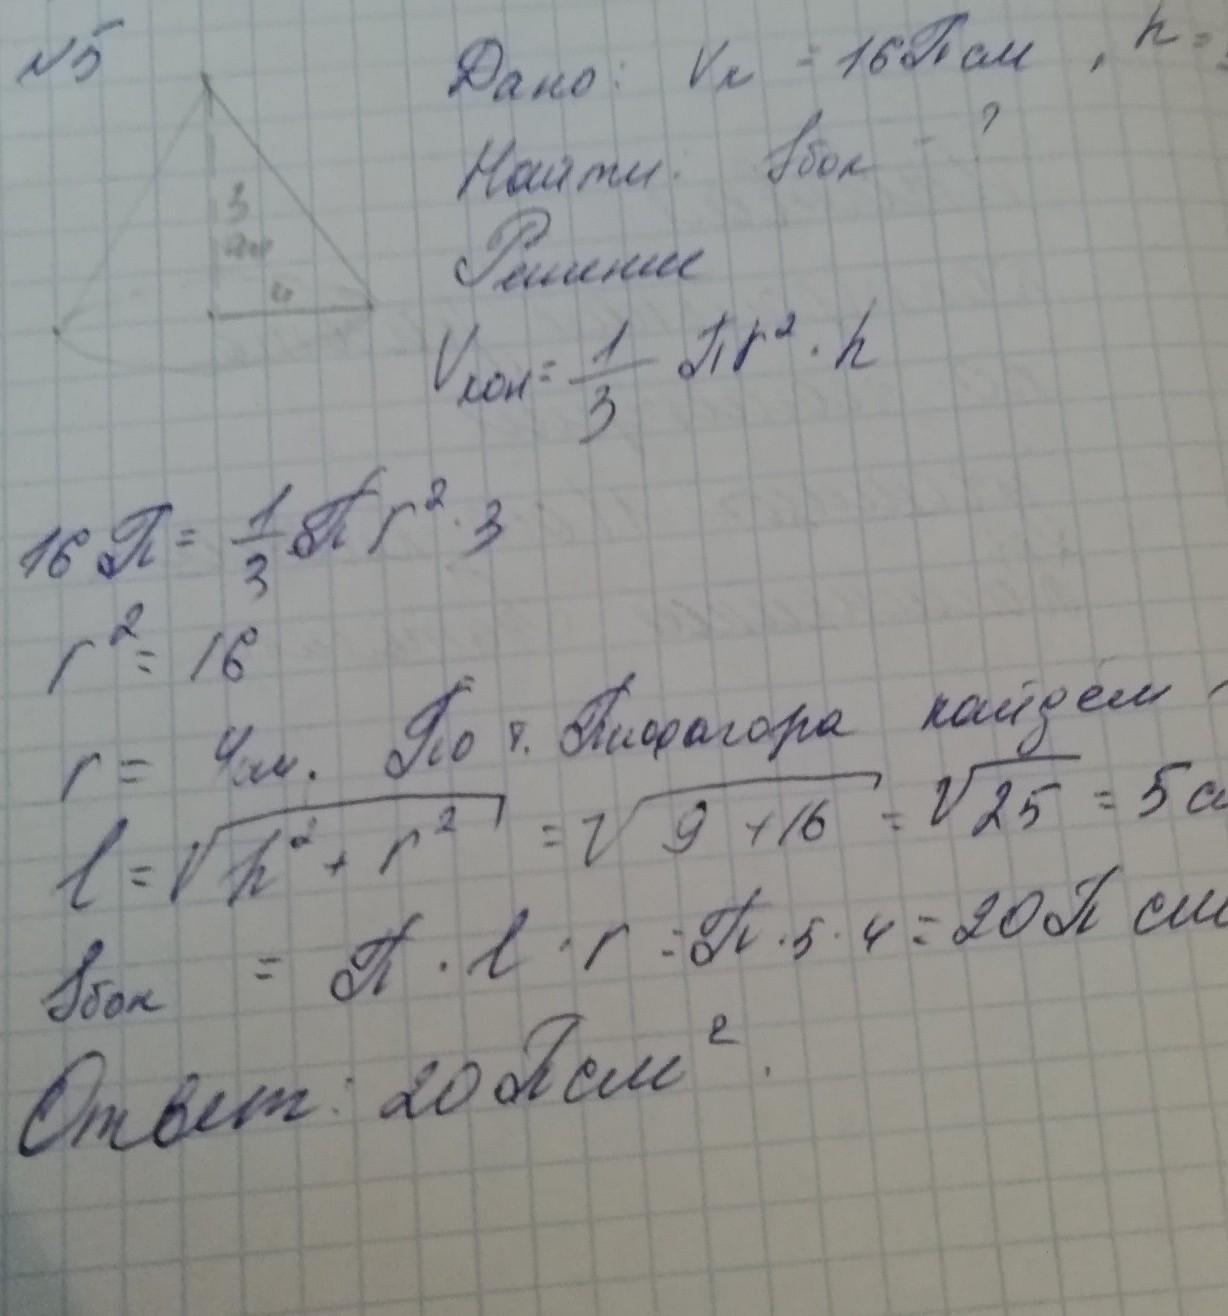 №5
Дано: Vк = 16П см, h =
Найти: Sбок - ?
Решение
3
см
4
Vкон = 1/3 Пr² · h
16П = 1/3 Пr² · 3
r² = 16
r = 4см. По т. Пифагора найдём
l = √h² + r² = √9 + 16 = √25 = 5 с
Sбок = П · l · r = П · 5 · 4 = 20П см
Ответ: 20П см².